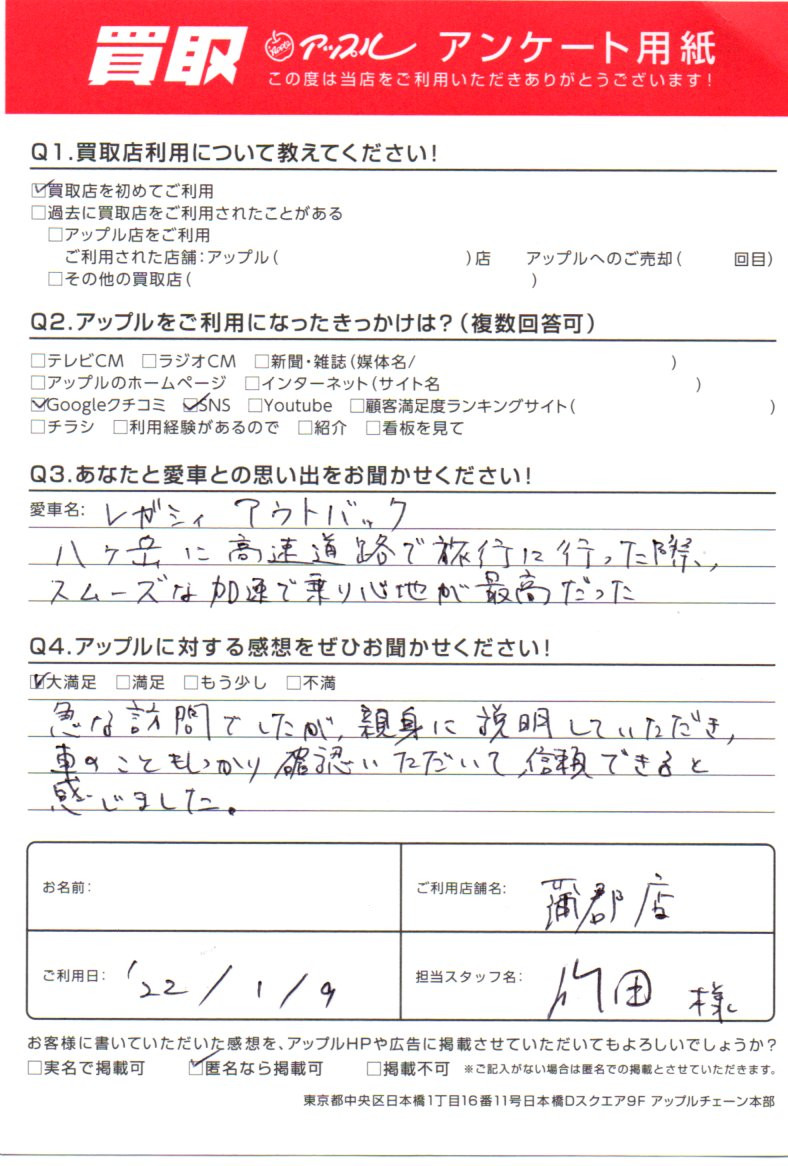 買取 アップル アンケート用紙
この度は当店をご利用いただきありがとうございます!
Q1.買取店利用について教えてください!
☑買取店を初めてご利用
□過去に買取店をご利用されたことがある
□アップル店をご利用
ご利用された店舗:アップル( )店 アップルへのご売却( 回目)
□その他の買取店( )
Q2.アップルをご利用になったきっかけは?(複数回答可)
□テレビCM □ラジオCM □新聞・雑誌(媒体名/ )
□アップルのホームページ □インターネット(サイト名 )
☑Googleクチコミ ☑SNS □Youtube □顧客満足度ランキングサイト( )
□チラシ □利用経験があるので □紹介 □看板を見て
Q3.あなたと愛車との思い出をお聞かせください!
愛車名: レガシィ アウトバック
八ヶ岳に高速道路で旅行に行った際、
スムーズな加速で乗り心地が最高だった
Q4.アップルに対する感想をぜひお聞かせください!
☑大満足 □満足 □もう少し □不満
急な訪問でしたが、親身に説明していただき、
車のこともしっかり確認いただいて、信頼できると
感じました。
お名前:
ご利用店舗名: 蒲郡店
ご利用日: '22/1/9
担当スタッフ名: 竹田 様
お客様に書いていただいた感想を、アップルHPや広告に掲載させていただいてもよろしいでしょうか?
□実名で掲載可 ☑匿名なら掲載可 □掲載不可 ※ご記入がない場合は匿名での掲載とさせていただきます。
東京都中央区日本橋1丁目16番11号日本橋Dスクエア9F アップルチェーン本部